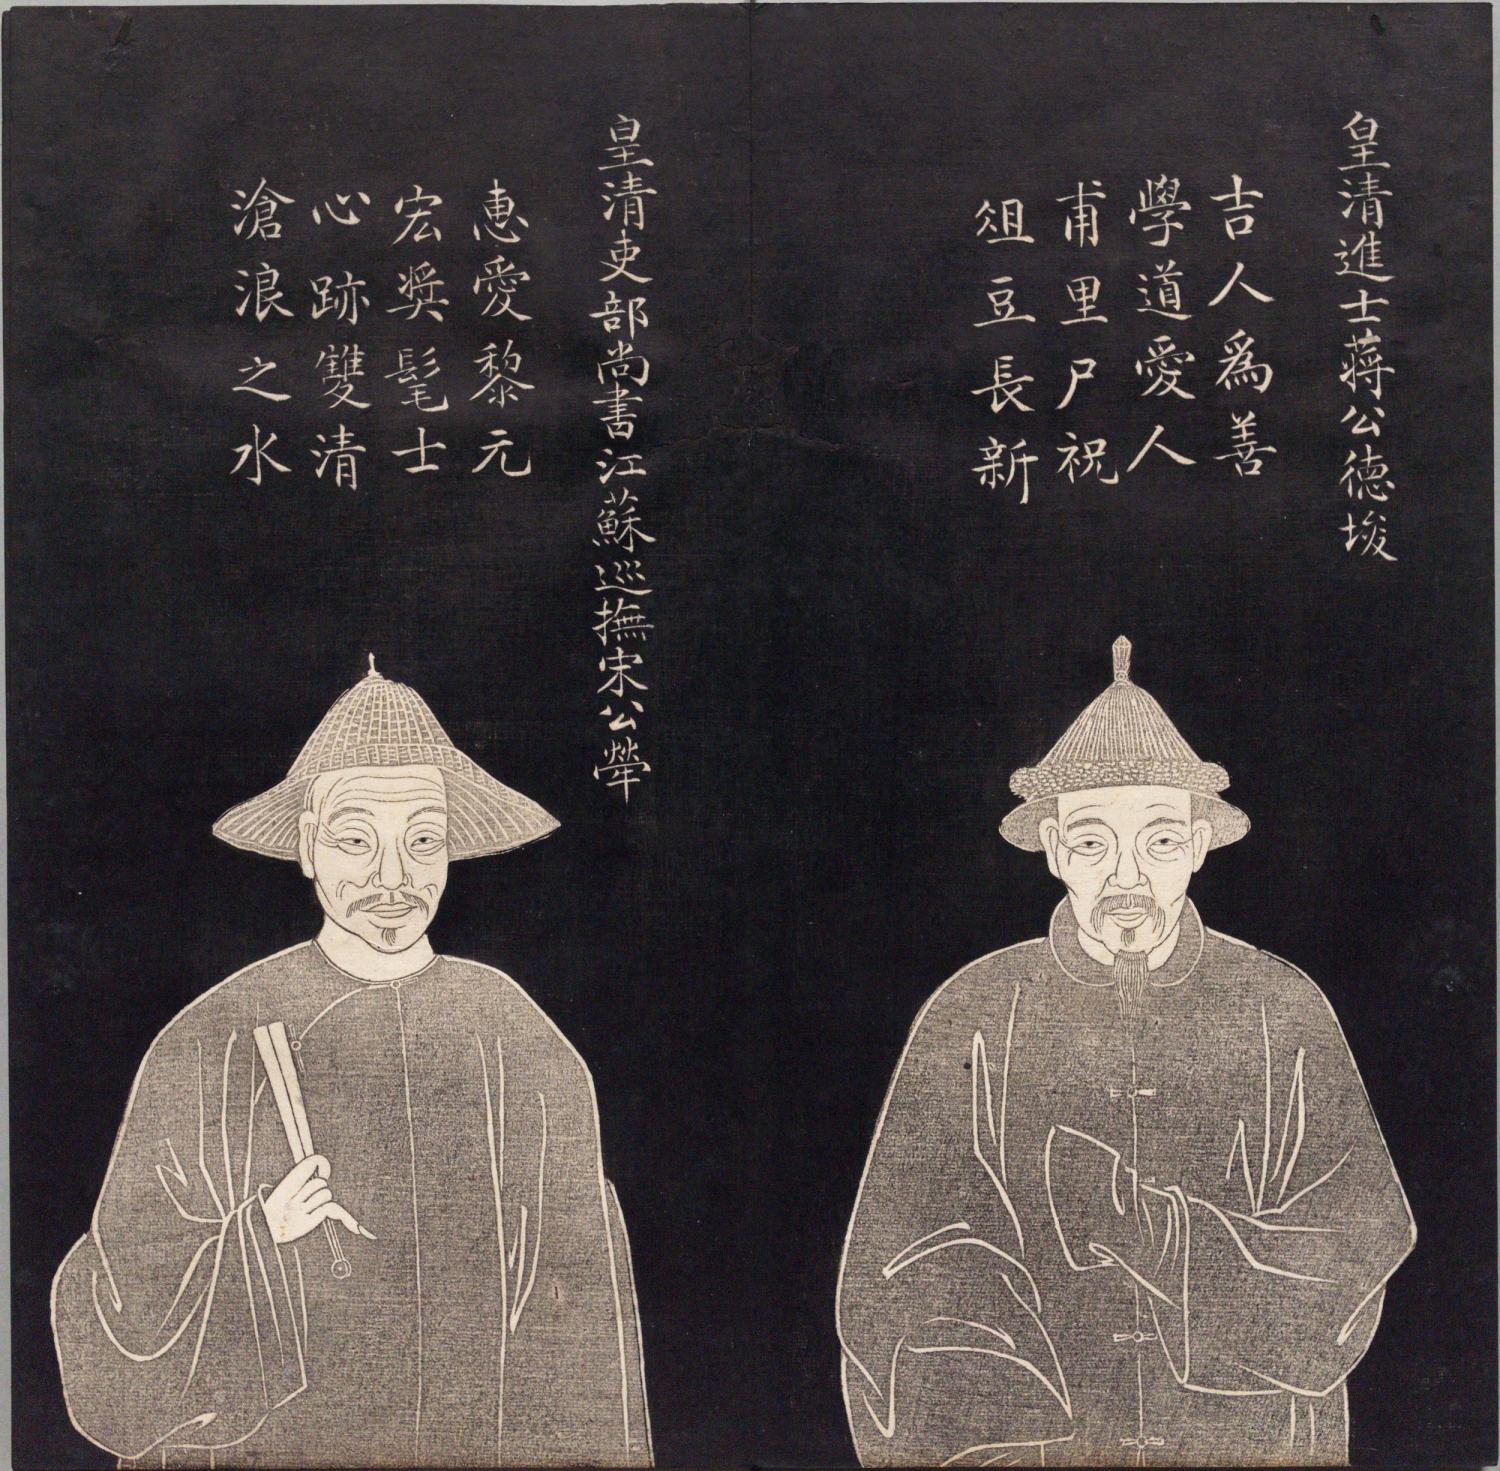 皇清進士蔣公德埈
吉人爲善
學道愛人
甫里尸祝
俎豆長新
皇清吏部尚書江蘇巡撫宋公犖
惠愛黎元
宏奨髦士
心跡雙清
滄浪之水